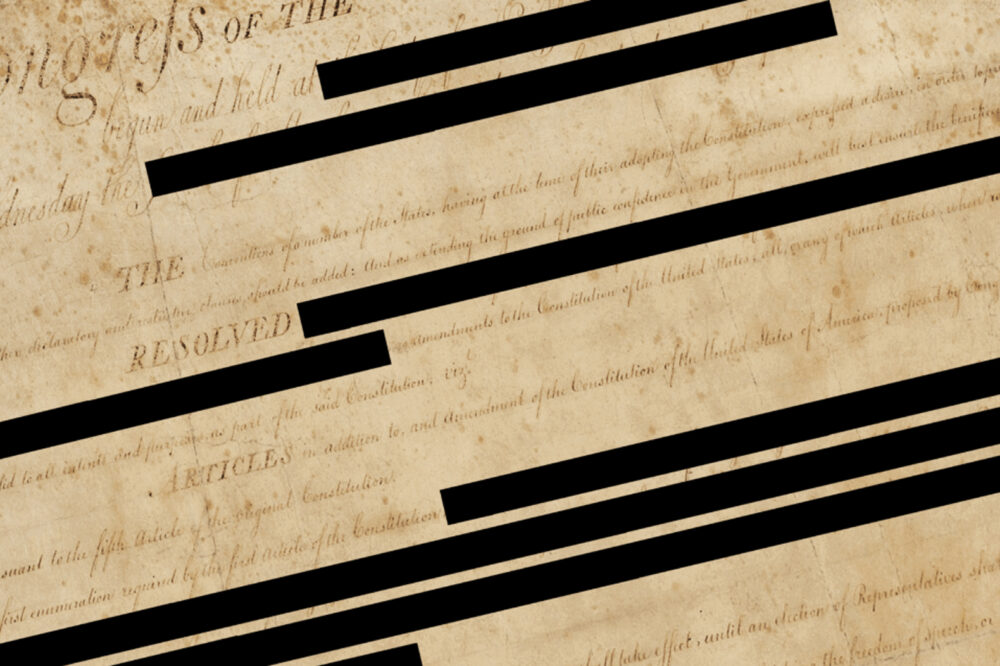 ongreſs OF THE
begun and held at
dnesday the
THE Conventions of a number of the States, having at the time of their adopting the Constitution, expressed a desire, in order to
declaratory and restrictive clauses should be added: And as extending the ground of public confidence in the Government, will best ensure the
RESOLVED
amendments to the Constitution of the United States, all, or any of which Articles, when
to all intents and purposes, as part of the said Constitution; viz.
ARTICLES in addition to, and amendment of the Constitution of the United States of America, proposed by
suant to the fifth Article of the original Constitution.
first enumeration required by the first Article of the Constitution
take effect, until an election of Representatives
the freedom of speech, or